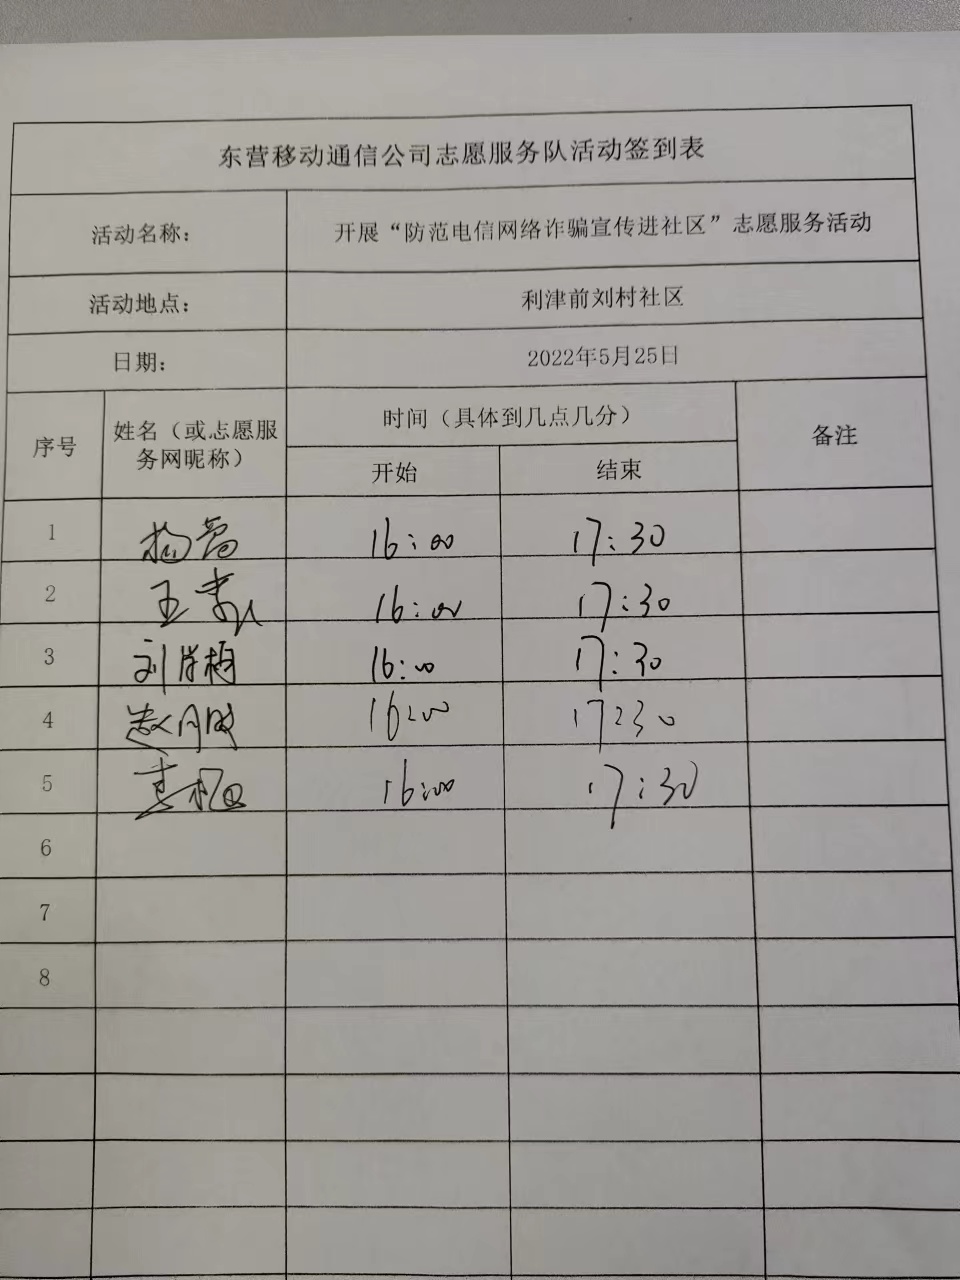 东营移动通信公司志愿服务队活动签到表
活动名称： 开展“防范电信网络诈骗宣传进社区”志愿服务活动
活动地点： 利津前刘村社区
日期： 2022年5月25日
序号 姓名（或志愿服务网昵称） 时间（具体到几点几分） 备注
开始 结束
1 16:00 17:30
2 王 16:00 17:30
3 刘肖梅 16:00 17:30
4 16:00 17:30
5 16:00 17:30
6
7
8